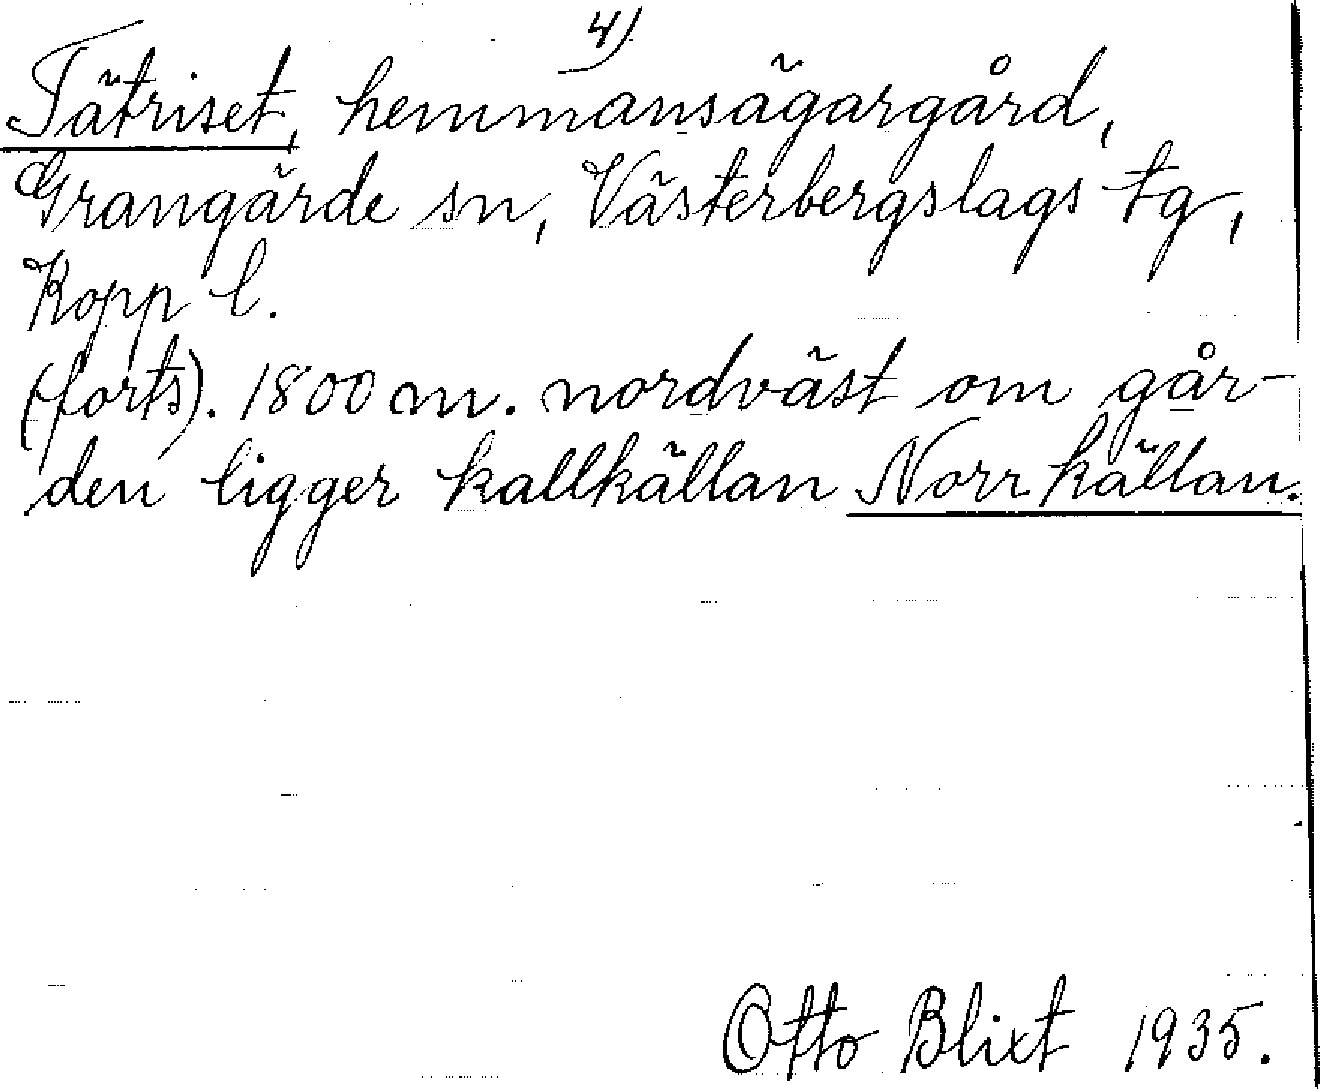 4)
Tätriset, hemmansägargård,
Grangärde sn, Västerbergslags tg,
Kopp l.
(forts). 1800 m. nordväst om går-
den ligger kallkällan Norrkällan.
Otto Blixt 1935.